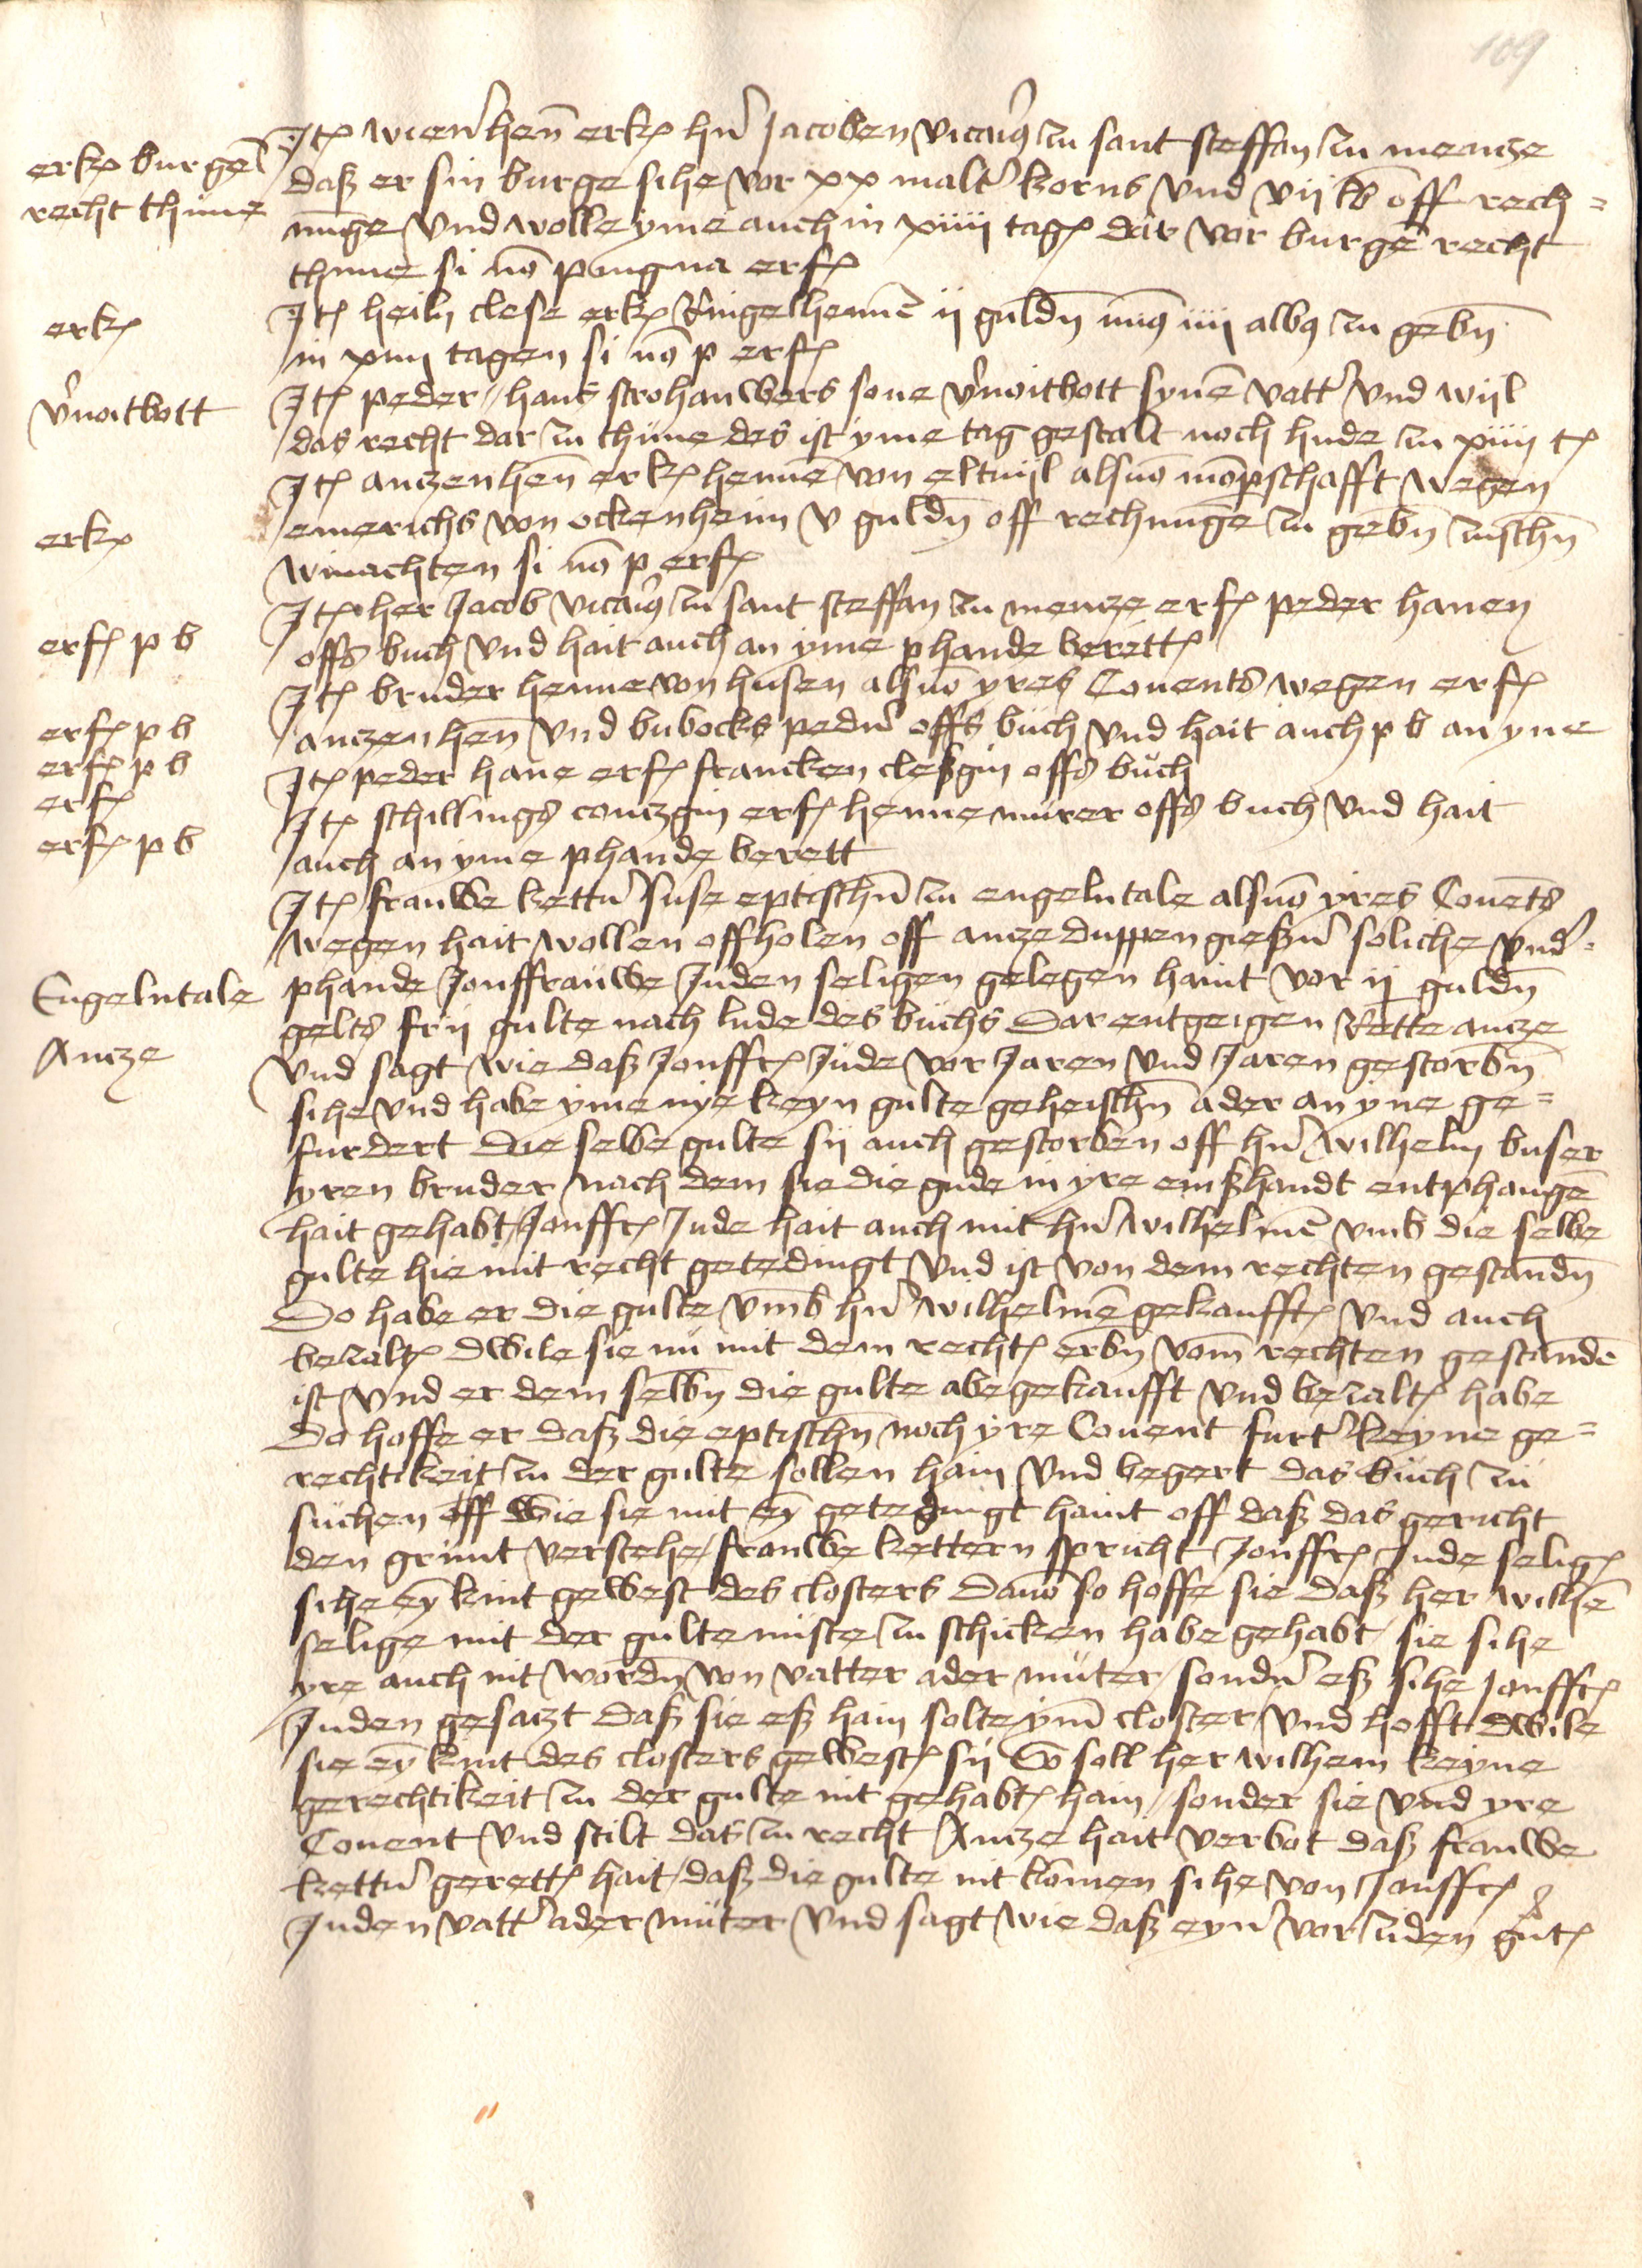 109
Jt(em) wiener hen̄ erk(ent) hn̄ Jacoben vicariꝯ zu sant steffan zu mencze
erk(ent) burgeñ
daß er sin burge sihe vor xx malt' korns vnd vij lb off rech=
recht thune
nu̅ge vnd wolle yme auch in xiiij tag(en) dar vor burgē recht
thune si nō pingnꝰa erf(olgt)
erk(ent)
Jt(em) heiln clese erk(ent) Ringelhennē ij guldn̄ minꝯ iiij albꝯ zu gebn̄
in xiiij tagen si nō p erf(olgt)
v'noitbott
Jt(em) peder hans strohauwers sone v'noitbott synē vatt' vnd wijl
das recht dar zu thune des ist yme tag gestalt noch hude zu xiiij t(agen)
Jt(em) anczen hen̄ erk(ent) hennē von eltuijl alsuō mōpschafft wegen
erk(ent)
emerichs von ockenheim v guldn̄ off rechnu̅ge zu gebn̄ zusschn̄
winachten si nō p erf(olgt)
Jt(em) her Jacob vicariꝯ zu sant steffan zu mencze erf(olgt) peder hanen
erf(olgt) p b
offs buch vnd hait auch an yme phande berett(en)
Jt(em) bruder henne von husen alsuō yres Couents wegen erf(olgt)
erf(olgt) p b
anczen hen̄ vnd bubocks pedn̄ offs buch vnd hait auch p b an yne
erf(olgt) p b
Jt(em) peder hane erf(olgt) francken cleßgin offs buch
erf(olgt)
Jt(em) schillings conczgin erf(olgt) henne murer offs buch vnd hait
erf(olgt) p b
auch an yme phande berett
Jt(em) frauwe kettn̄ suse eptischn̄ zu engelntale alsuō yres Couēts
wegen hait wollen offholen off ancze duppengießn̄ soliche vnd'=
Engelntale
phande Jonffrauwe Juden seligen gelegen haint vor ij guldn̄
gelts frij gulte nach lude des buchs Dar entgeigen Rette ancze
Ancze
vnd sagt wie daß Jonffr(auwe) Jude vor Jaren vnd Jaren gestorbn̄
sihe vnd habe yme nye keyn gulte geheischn̄ ader an yne ge=
furdert Die selbe gulte sij auch gestorben off hn̄ wilhelm buser
yren bruder nach dem sie die gude in yre einßhandt entphangē
hait gehabt Jonffr(auwe) Jude hait auch mit hn̄ wilhelmē vmb die selbe
gulte hie mit recht getedingt vnd ist von dem rechten gestandn̄
Do habe er die gulte vmb hn̄ wilhelmē gekaufft(en) vnd auch
bezalt(en) Dwile sie nu mit dem recht(en) erbn̄ vom̄ rechten gestandē
ist vnd er dem selbn̄ die gulte abegekaufft vnd bezalt(en) habe
Do hoffe er daß die eptischn̄ noch yre Couent furt' keyne ge=
rechtikeit zu der gulte sollen hain vnd begert das buch zu
suchen off wie sie mit eȳ getedingt haint off daß das gericht
den grunt verstehe frauwe kettern spricht Jonffr(auwe) Jude selig(en)
sihe eȳ kint gewest des closters Davō so hoffe sie daß her wilhē
selige mit der gulte niste zu schicken habe gehabt sie sihe
yre auch nit wordn̄ von vatter ader muter sondn̄ eß sihe Jonffr(auwe)
Juden gesaczt daß sie eß hain solte ym̄ closter vnd hofft Dwile
sie eȳ kint des closters gewest(en) sij So soll her wilhem keyne
gerechtikeit zu der gulte nit gehabt(en) hain sonder sie vnd yre
Couent vnd stilt das zu recht Ancze hait verbot daß frauwe
kettn̄ gerett(en) hait daß die gulte nit kōmen sihe von Jonffr(auwe)
Juden vatt' ader muter vnd sagt wie daß eyn' vor ziden gut(en)